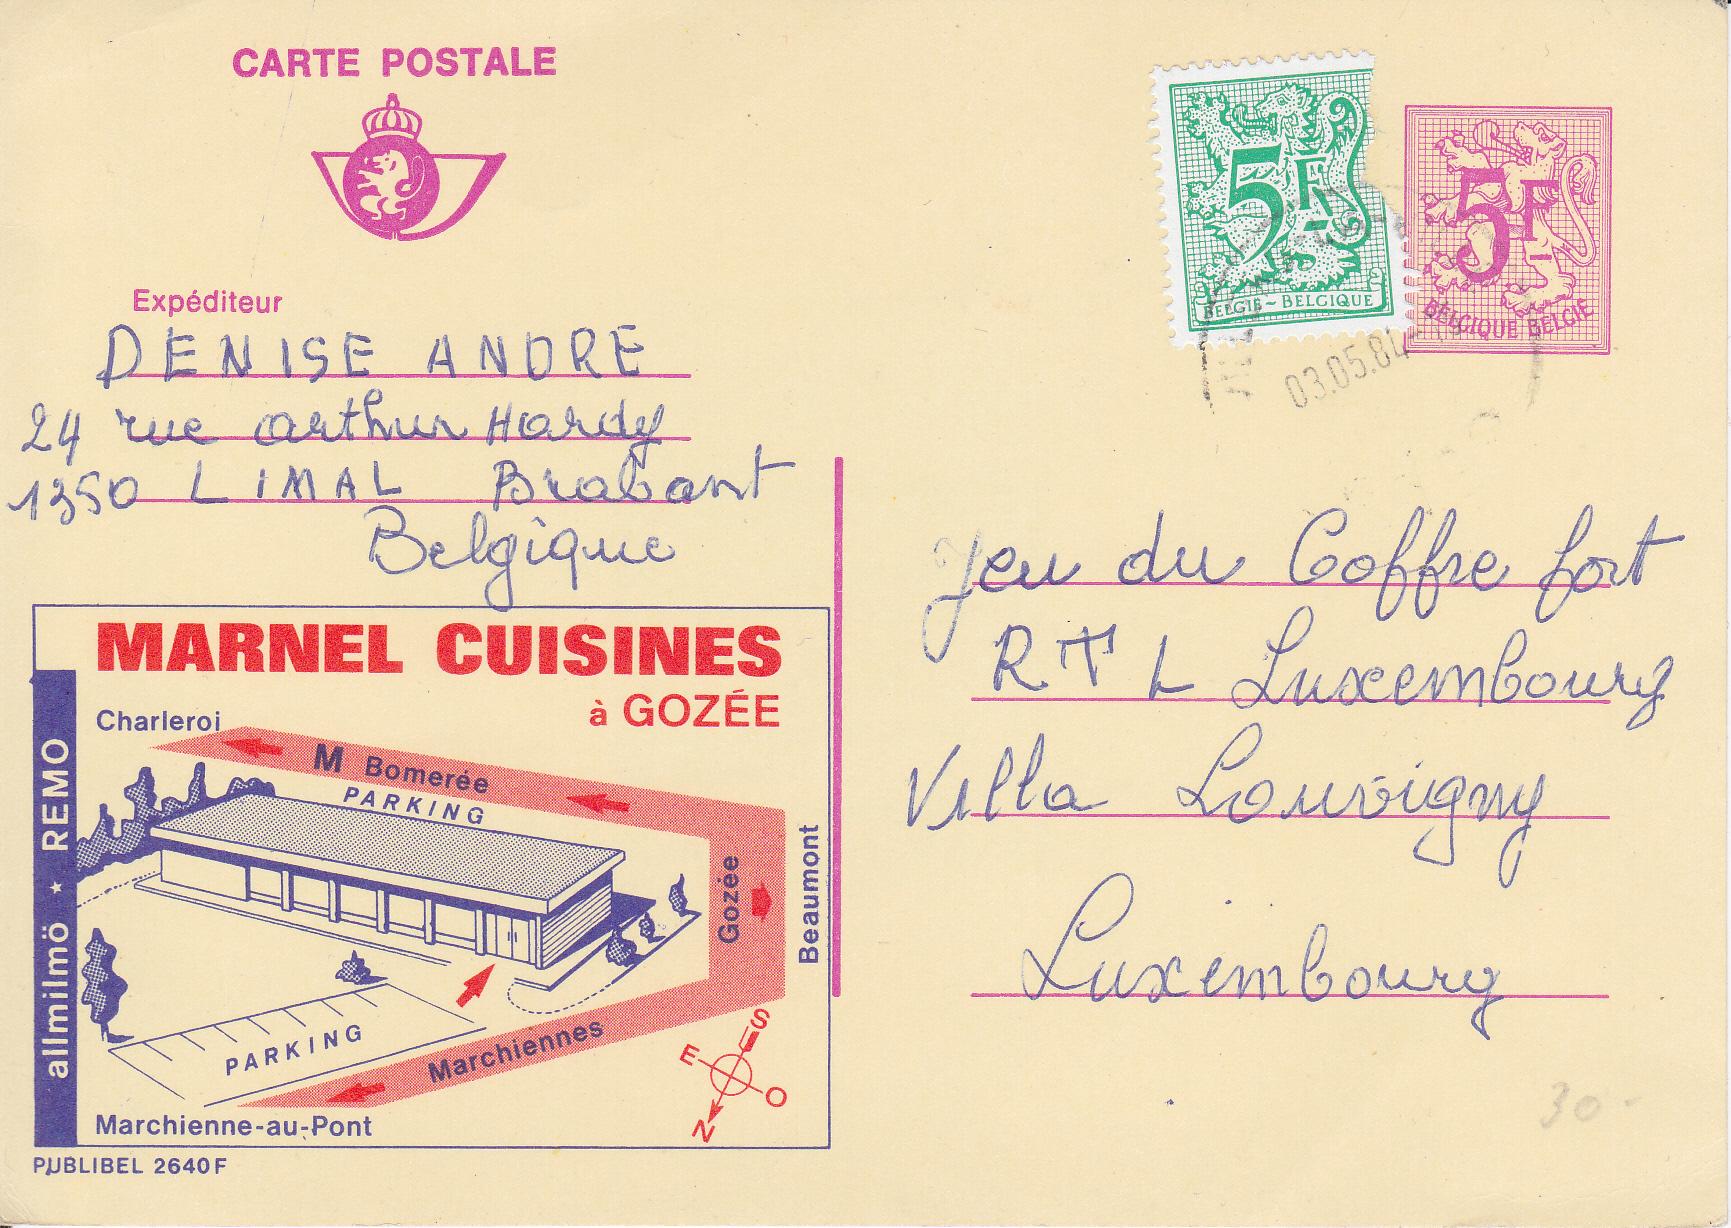 CARTE POSTALE
Expéditeur
DENISE ANDRE
24 rue arthur Hardy
1350 LIMAL Brabant
Belgique
MARNEL CUISINES
à GOZÉE
Charleroi
M Bomerée
PARKING
allmilmö ★ REMO
Gozée
Beaumont
PARKING
Marchiennes
S
E
O
N
Marchienne-au-Pont
PUBLIBEL 2640F
5F
BELGIË-BELGIQUE
5F
BELGIQUE BELGIË
03.05.84
Jeu du Coffre fort
RTL Luxembourg
Villa Louvigny
Luxembourg
30-